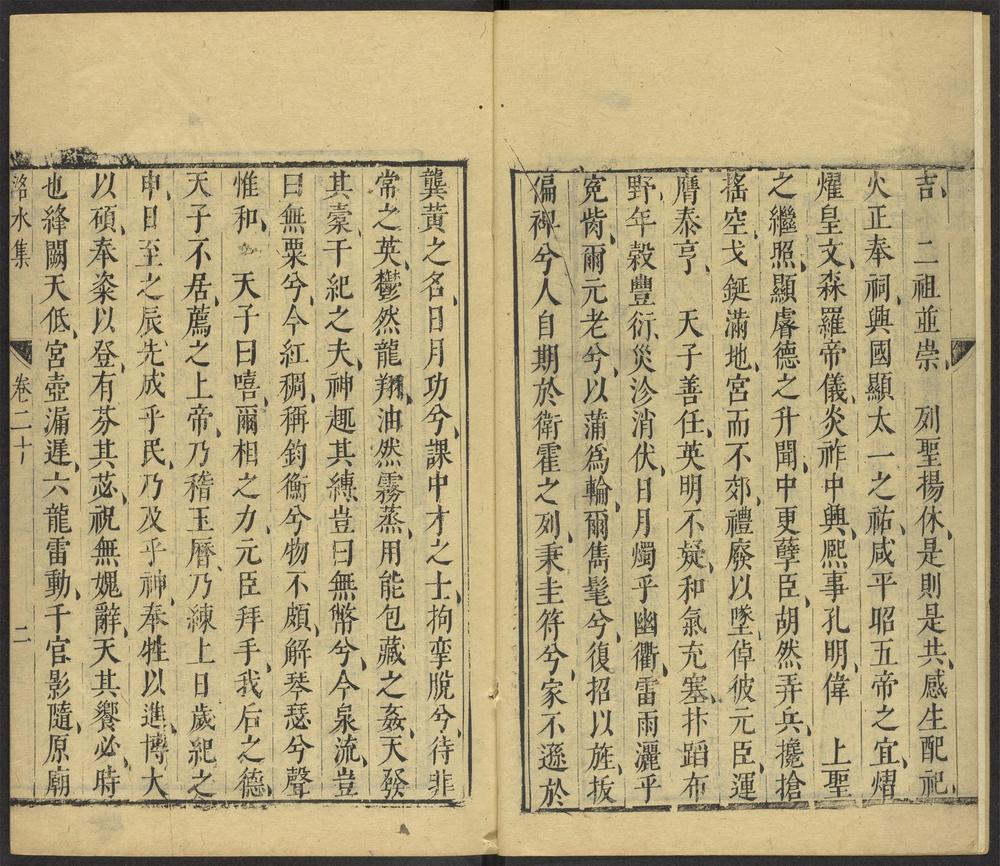 吉、　二祖並崇、　列聖揚休、是則是共、感生配祀、
火正奉祠、興國顯太一之祐、咸平昭五帝之宜、熠
燿皇文、森羅帝儀、炎祚中興、熙事孔明、偉　上聖
之繼照、顯睿德之升聞、中更孽臣、胡然弄兵、攙搶
搖空、戈鋋滿地、宮而不郊、禮廢以墜、倬彼元臣、運
膺泰亨、　天子善任、英明不疑、和氣充塞、抃蹈布
野、年穀豐衍、災沴消伏、日月燭乎幽衢、雷雨灑乎
寃胔、爾元老兮、以蒲爲輪、爾雋髦兮、復招以旌、拔
偏裨兮、人自期於衛霍之列、秉圭符兮、家不遜於
龔黃之名、日月功兮、課中才之士、拘攣脫兮、待非
常之英、鬱然龍翔、油然霧蒸、用能包藏之姦、天發
其橐、干紀之夫、神趣其縛、豈曰無幣兮、今泉流、豈
曰無粟兮、今紅稠、稱鈞衡兮物不頗、解琴瑟兮聲
惟和、　天子曰嘻、爾相之力、元臣拜手、我后之德、
天子不居、薦之上帝、乃稽玉曆、乃練上日、歲紀之
申、日至之辰、先成乎民、乃及乎神、奉牲以進、博大
以碩、奉粢以登、有芬其苾、祝無媿辭、天其饗必、時
也絳闕天低、宮壺漏遲、六龍雷動、千官影隨、原廟
洛水集　卷二十　二